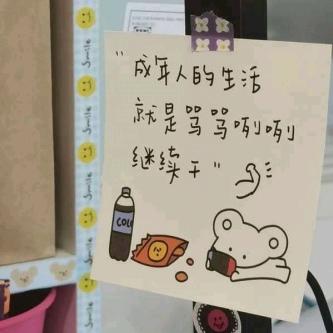 "成年人的生活
就是骂骂咧咧
继续干"
COL